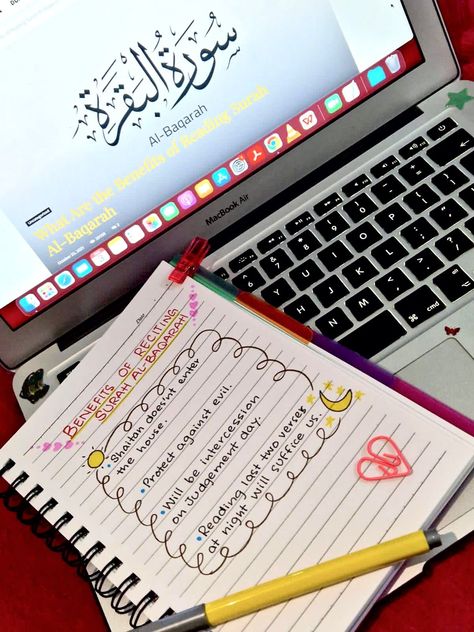 سورة البقرة
Al-Baqarah
What Are the Benefits of Reading Surah
Al-Baqarah
October 20, 2021
MacBook Air
Date
BENEFITS OF RECITING
SURAH AL-BAQARAH
• Shaitan does'nt enter
the house.
• Protect against evil.
• Will be intercession
on Judgement day.
• Reading last two verses
at night will suffice us.